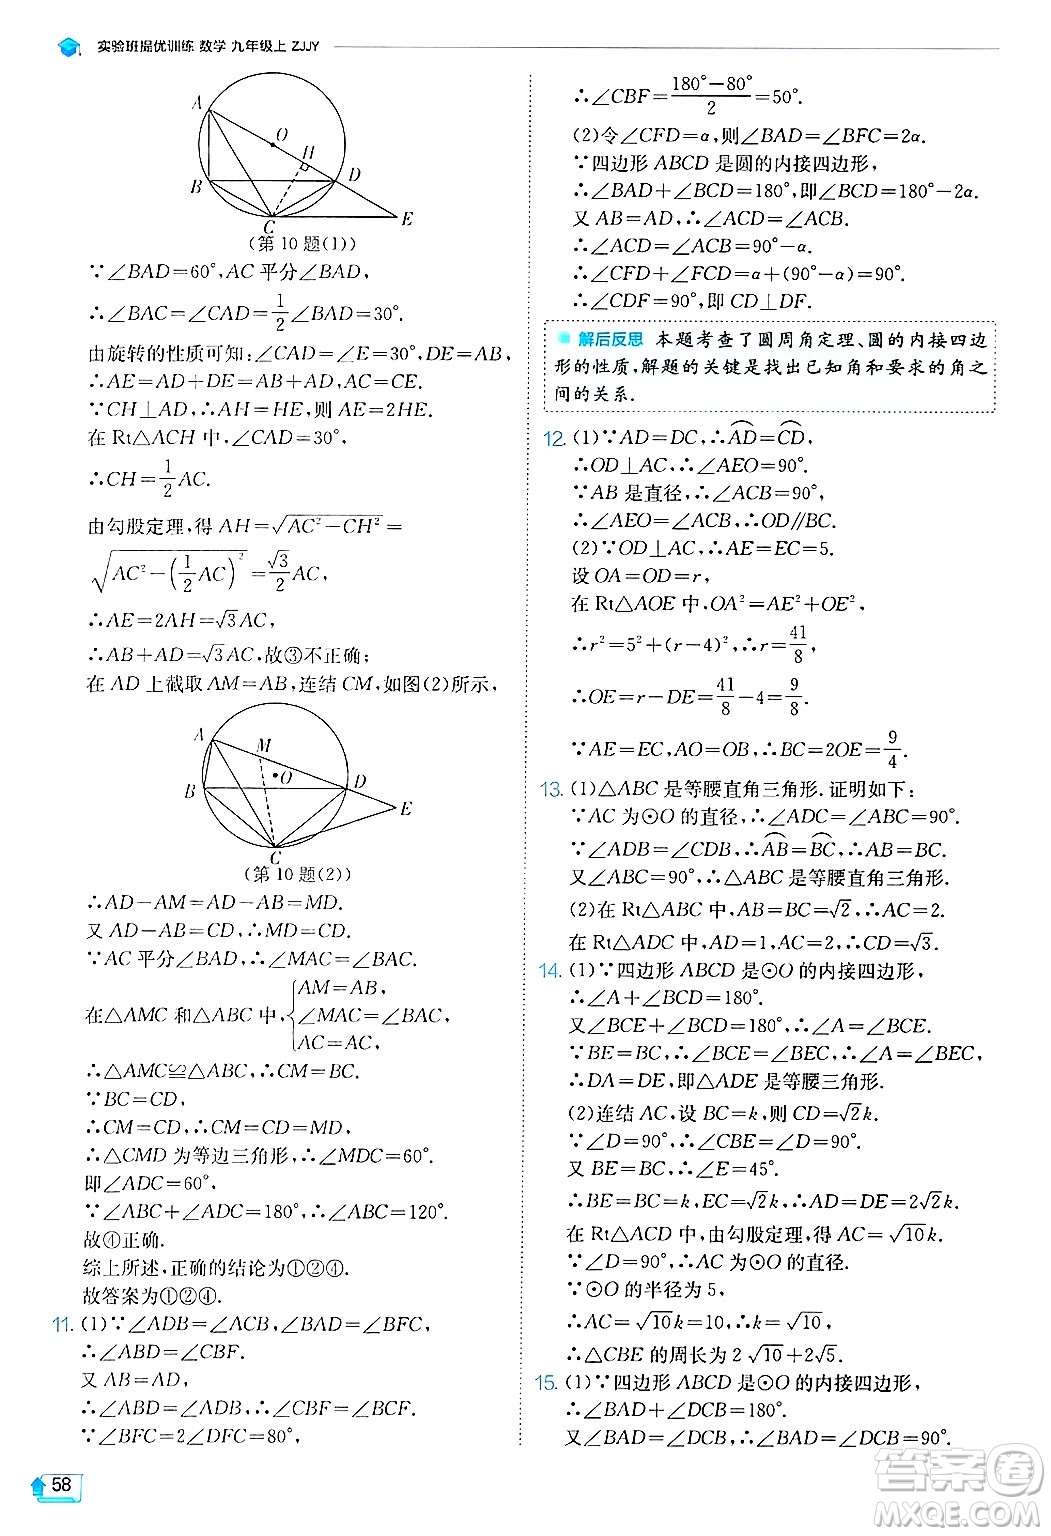 实验班提优训练 数学 九年级上 ZJJY
A
O
H
B
D
C
E
(第10题(1))
∵∠BAD=60°,AC平分∠BAD,
∴∠BAC=∠CAD=1/2∠BAD=30°.
由旋转的性质可知:∠CAD=∠E=30°,DE=AB,
∴AE=AD+DE=AD+AB,AC=CE.
∵CH⊥AD,∴AH=HE,则AE=2HE.
在Rt△ACH中,∠CAD=30°,
∴CH=1/2AC.
由勾股定理,得AH=√(AC²-CH²)=
√(AC²-(1/2AC)²)=√3/2AC,
∴AE=2AH=√3AC,
∴AB+AD=√3AC,故③不正确;
在AD上截取AM=AB,连结CM,如图(2)所示,
A
M
O
B
D
E
C
(第10题(2))
∴AD-AM=AD-AB=MD.
又AD-AB=CD,∴MD=CD.
∵AC平分∠BAD,∴∠MAC=∠BAC.
在△AMC和△ABC中,{AM=AB,
∠MAC=∠BAC,
AC=AC,
∴△AMC≌△ABC,∴CM=BC.
∵BC=CD,
∴CM=CD,∴CM=CD=MD,
∴△CMD为等边三角形,∴∠ADC=60°.
即∠ADC=60°.
∵∠ABC+∠ADC=180°,∴∠ABC=120°.
故④正确.
综上所述,正确的结论为①②④.
故答案为①②④.
11. (1)∵∠ADB=∠ACB,∠BAD=∠BFC,
∴∠ABD=∠CBF.
又AB=AD,
∴∠ABD=∠ADB,∴∠CBF=∠BCF.
∵∠BFC=2∠DFC=80°,
∴∠CBF=(180°-80°)/2=50°.
(2)令∠CFD=α,则∠BAD=∠BFC=2α.
∵四边形ABCD是圆的内接四边形,
∴∠BAD+∠BCD=180°,即∠BCD=180°-2α.
又AB=AD,∴∠ACD=∠ACB.
∴∠ACD=∠ACB=90°-α.
∴∠CFD+∠FCD=α+(90°-α)=90°.
∴∠CDF=90°,即CD⊥DF.
解后反思 本题考查了圆周角定理、圆的内接四边
形的性质,解题的关键是找出已知角和要求的角之
间的关系.
12. (1)∵AD=DC,∴⌒AD=⌒CD,
∴OD⊥AC,∴∠AEO=90°.
∵AB是直径,∴∠ACB=90°,
∴∠AEO=∠ACB,∴OD∥BC.
(2)∵OD⊥AC,∴AE=EC=5.
设OA=OD=r,
在Rt△AOE中,OA²=AE²+OE²,
∴r²=5²+(r-4)²,∴r=41/8.
∴OE=r-DE=41/8-4=9/8.
∵AE=EC,AO=OB,∴BC=2OE=9/4.
13. (1)△ABC是等腰直角三角形.证明如下:
∵AC为⊙O的直径,∴∠ADC=∠ABC=90°.
∵∠ADB=∠CDB,∴⌒AB=⌒BC,∴AB=BC.
又∠ABC=90°,∴△ABC是等腰直角三角形.
(2)在Rt△ABC中,AB=BC=√2,∴AC=2.
在Rt△ADC中,AD=1,AC=2,∴CD=√3.
14. (1)∵四边形ABCD是⊙O的内接四边形,
∴∠A+∠BCD=180°.
又∠BCE+∠BCD=180°,∴∠A=∠BCE.
∵BE=BC,∴∠BCE=∠BEC,∴∠A=∠BEC,
∴DA=DE,即△ADE是等腰三角形.
(2)连结AC,设BC=k,则CD=√2k.
∵∠D=90°,∴∠CBE=∠D=90°.
又BE=BC,∴∠E=45°.
∴BE=BC=k,EC=√2k,∴AD=DE=2√2k.
在Rt△ACD中,由勾股定理,得AC=√10k.
∵∠D=90°,∴AC为⊙O的直径.
∵⊙O的半径为5,
∴AC=√10k=10,∴k=√10,
∴△CBE的周长为2√10+2√5.
15. (1)∵四边形ABCD是⊙O的内接四边形,
∴∠BAD+∠DCB=180°.
又∠BAD=∠DCB,∴∠BAD=∠DCB=90°.
58
答案圈
MXQE.COM